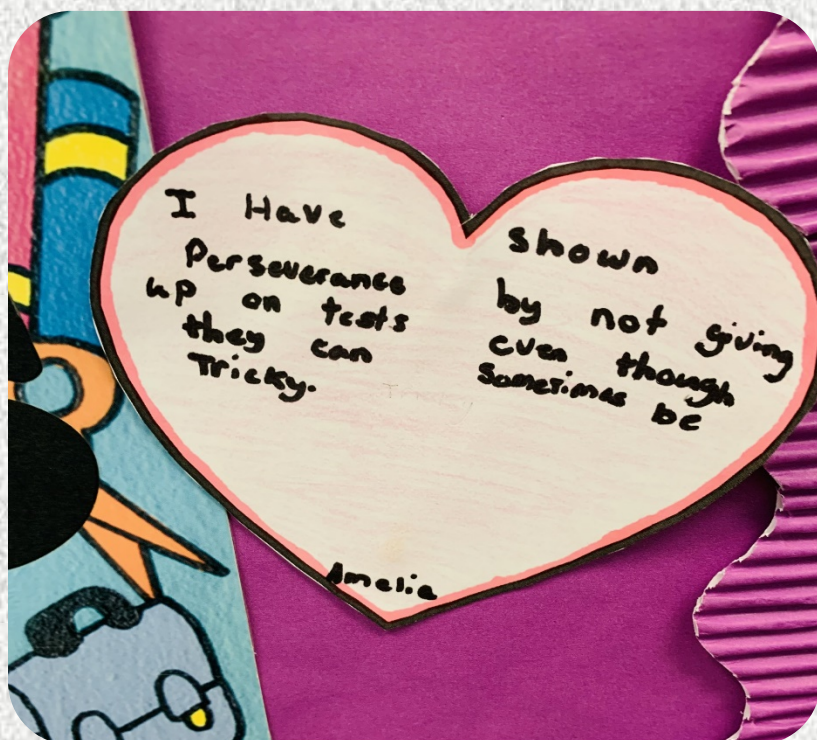 I Have shown
Perseverance by not giving
up on tests even though
they can sometimes be
Tricky.
Amelia